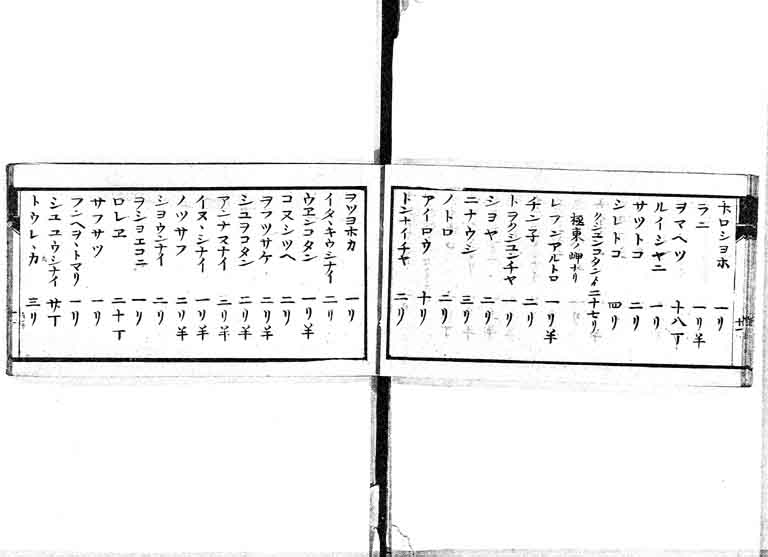 ホロショホ 一リ
ラニ 一リ半
ヲマヘツ 十八丁
ルイシヤニ 一リ
サツトコ 二リ
シレトコ 四リ
クシユンコタンイ 二十七リ半
極東ノ岬ナリ
レフンアルトロ 一リ半
チン子 二リ
トヲクシユンチヤ 一リ
ショヤ 二リ
ニナウシ 三リ
ノトロ 二リ
アイロウ 十リ
トンナイチヤ 二リ
ヲツヨホカ 一リ
イタヽキウシナイ 二リ
ウヱンコタン 一リ半
コヌシツヘ 二リ
ヲフツサケ 二リ半
シユヲコタン 二リ半
アンナヌナイ 二リ半
イヌヽシナイ 一リ半
ノツサフ 二リ半
ショウシナイ 二リ
ヲショエコニ 一リ
ロレヱ 二十丁
サフサツ 一リ
フンヘヲヽトマリ 一リ
シユユウシナイ 廿丁
トウレヽカ 三リ